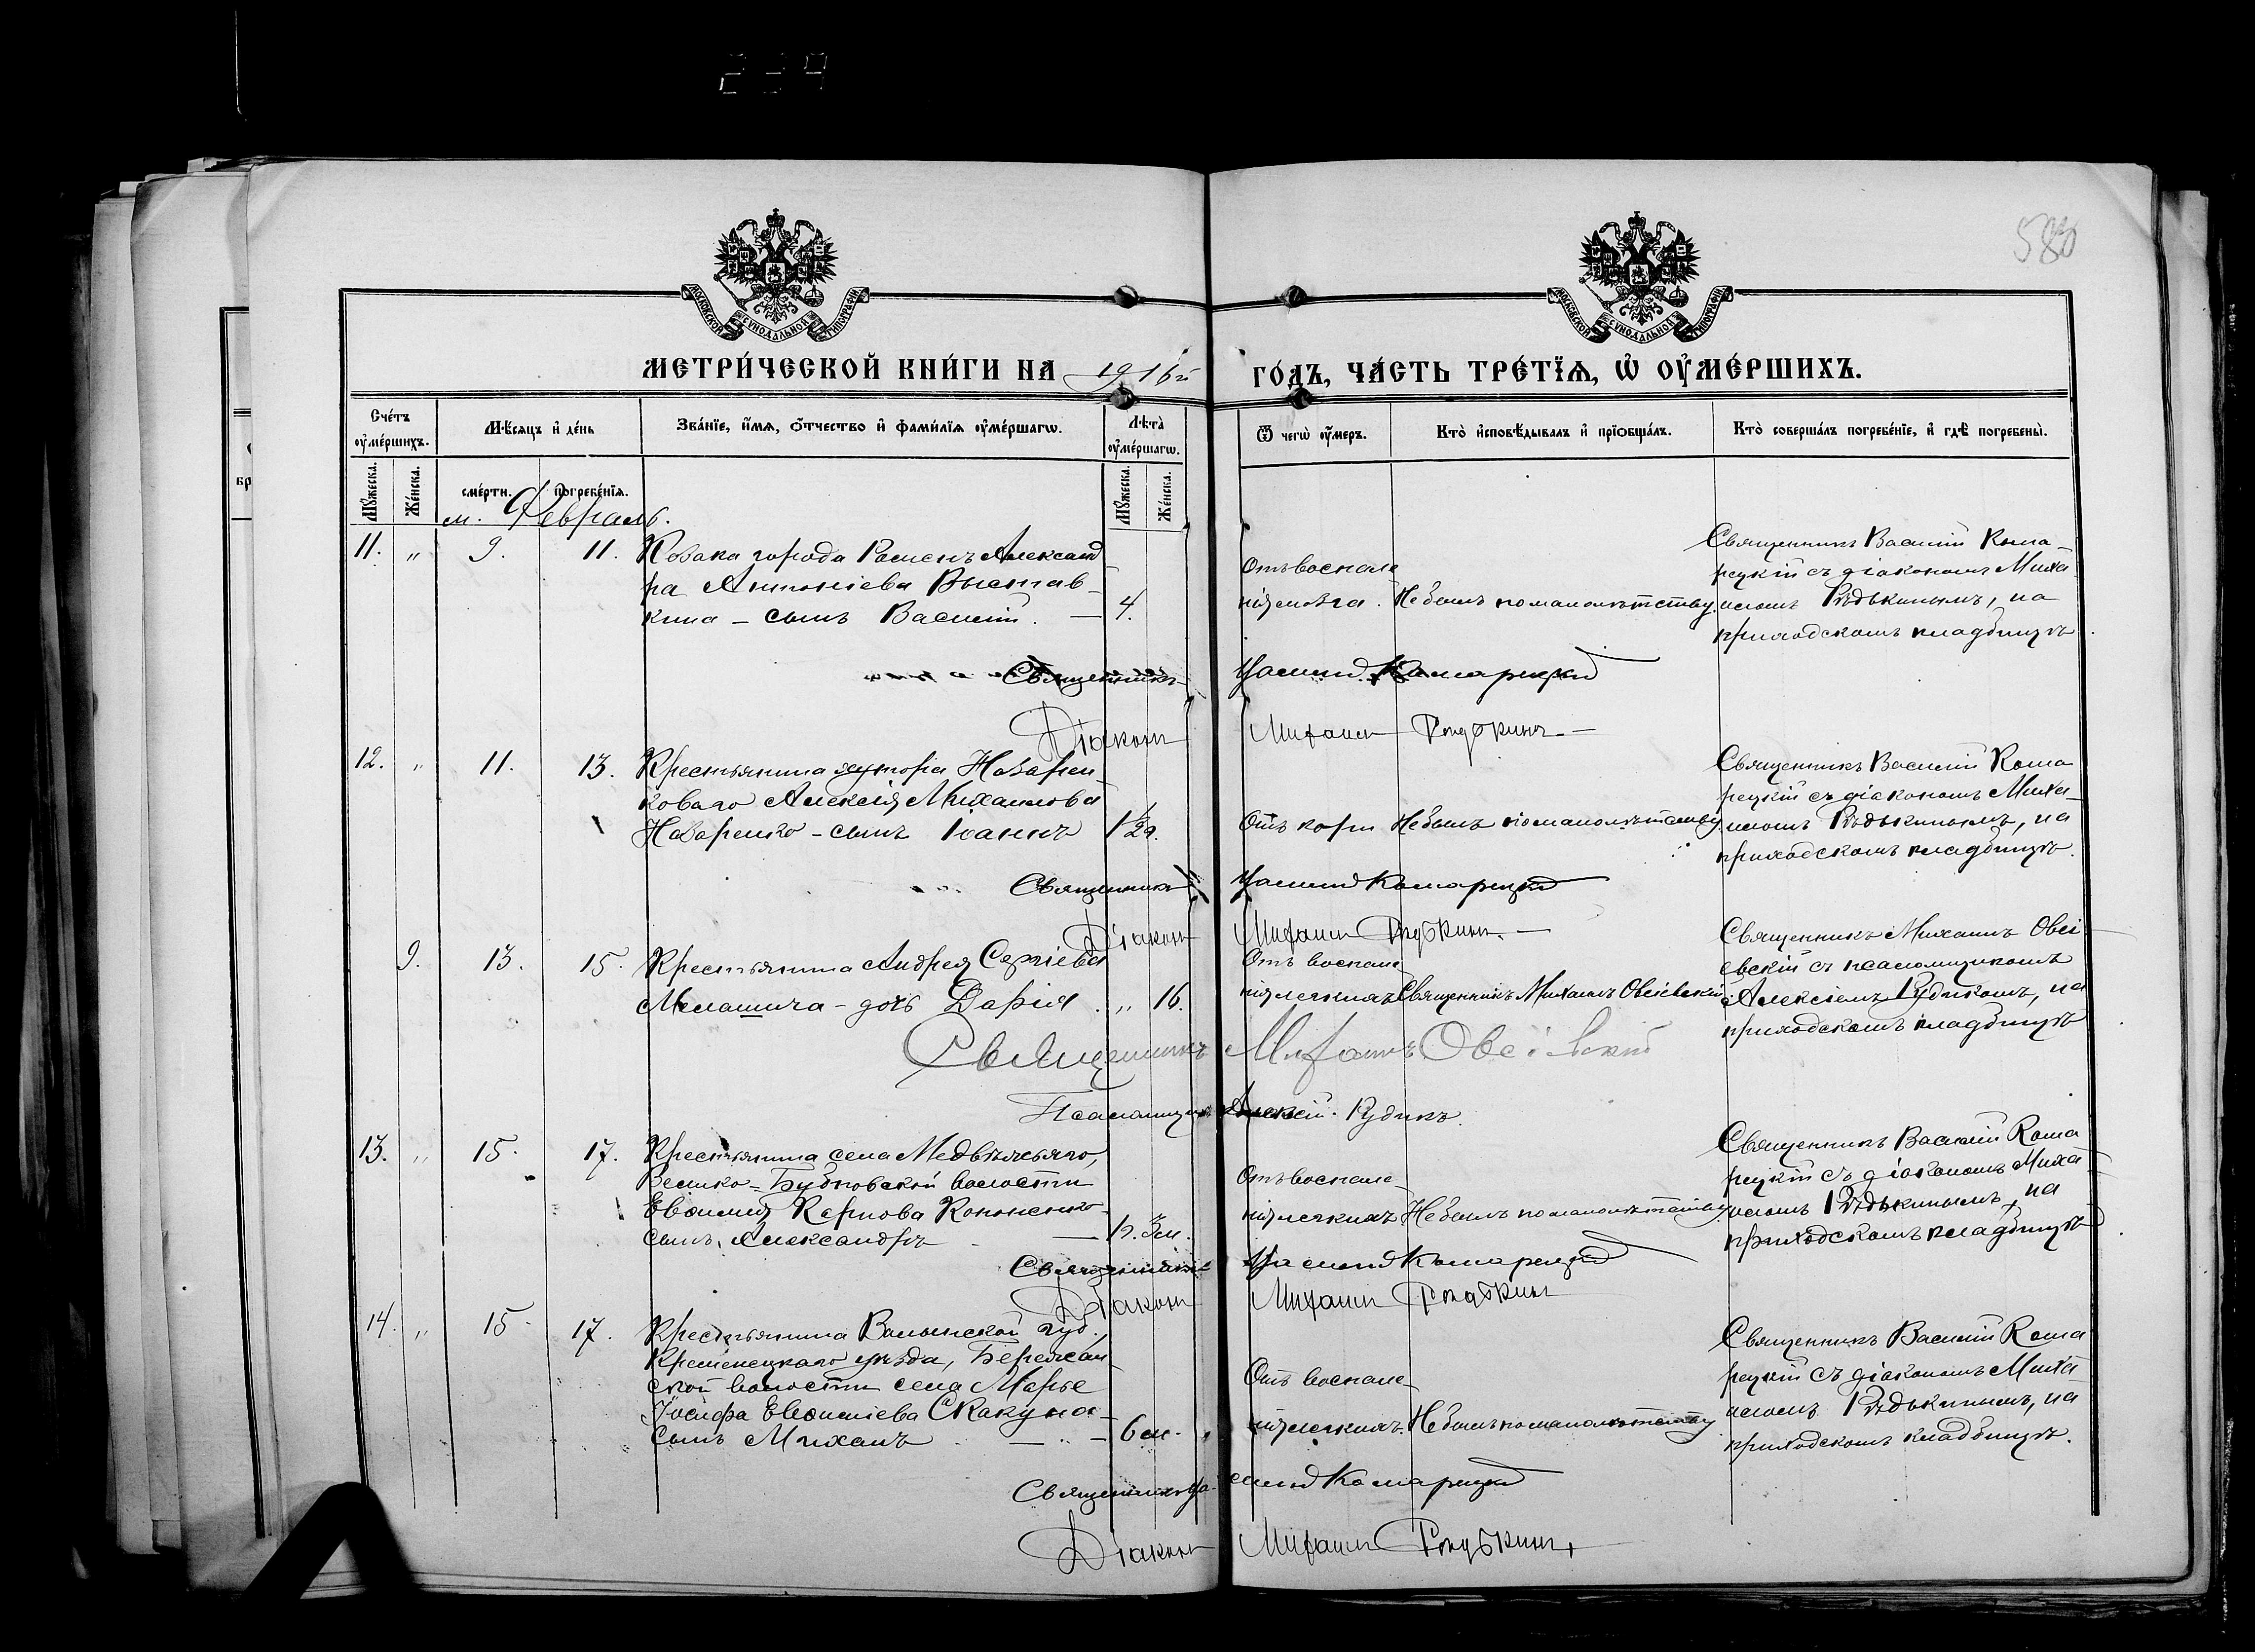 580
МОСКОВСКОЙ СУНОДАЛЬНОЙ ТИПОГРАФІИ
МОСКОВСКОЙ СУНОДАЛЬНОЙ ТИПОГРАФІИ
МЕТРИ́ЧЕСКОЙ КНИ́ГИ НА 1916й ГО́ДЪ, ЧА́СТЬ ТРЕ́ТІѦ, Ѡ҆ ОУ҆МЕ́РШИХЪ.
Сче́тъ оу҆ме́ршихъ.
Мѣ́сяцъ и҆ де́нь
Зва́нїе, и҆́мѧ, ѻ҆́тчество и҆ фами́лїѧ оу҆ме́ршагѡ.
Лѣ́та оу҆ме́ршагѡ.
Ѿ чегѡ̀ оу҆́меръ.
Кто̀ и҆сповѣ́дывалъ и҆ прїѡбща́лъ.
Кто̀ соверша́лъ погребе́нїе, и҆ гдѣ̀ погребены̀.
Мꙋ́жеска.
Же́нска.
сме́рти.
погребе́нїѧ.
Мꙋ́жеска.
Же́нска.
м. Февраль.
11. " 9. 11. Козака города Роменъ Александ
ра Антоніева Выстав-
кина - сынъ Василій. — 4.
Отъ воспале-
нія мозга. Не былъ по малолѣтству.
Священникъ Василій Кома-
рецкій съ діакономъ Миха-
иломъ Рѣдькинымъ, на
приходскомъ кладбищѣ.
Священникъ Василій Комарецкій
Діаконъ Михаилъ Рѣдькинъ
12. " 11. 13. Крестьянина хутора Назарен-
коваго Алексія Михаилова
Назаренко - сынъ Іоаннъ 1/2 г.
Отъ кори Не былъ по малолѣтству.
Священникъ Василій Кома
рецкій съ діакономъ Миха-
иломъ Рѣдькинымъ, на
приходскомъ кладбищѣ.
Священникъ Василій Комарецкій
Діаконъ Михаилъ Рѣдькинъ
9. 13. 15. Крестьянина Андрея Сергіева
дочь Дарія. " 16.
Отъ воспале-
нія легкихъ Священникъ Михаилъ Овсіевскій
Священникъ Михаилъ Овсі-
евскій съ псаломщикомъ
Алексіемъ Рудикомъ, на
приходскомъ кладбищѣ
Священникъ Михаилъ Овсіевскій
Псаломщикъ Алексій Рудикъ.
13. " 15. 17. Крестьянина села Медвѣжьяго,
Велико-Бубновской волости
Евѳимія Карпова Кононенко-
сынъ Александръ — 1 г. 3 м.
Отъ воспале-
нія легкихъ Не былъ по малолѣтству.
Священникъ Василій Кома
рецкій съ діакономъ Миха-
иломъ Рѣдькинымъ, на
приходскомъ кладбищѣ
Священникъ Василій Комарецкій
Діаконъ Михаилъ Рѣдькинъ
14. " 15. 17. Крестьянина Волынской губ.,
Кременецкаго уѣзда, Бережан
ской волости села
Іосифа Евѳиміева Скакуна-
сынъ Михаилъ — 6 м.
Отъ воспале-
нія легкихъ. Не былъ по малолѣтству
Священникъ Василій Кома
рецкій съ діакономъ Миха-
иломъ Рѣдькинымъ, на
приходскомъ кладбищѣ.
Священникъ Василій Комарецкій
Діаконъ Михаилъ Рѣдькинъ